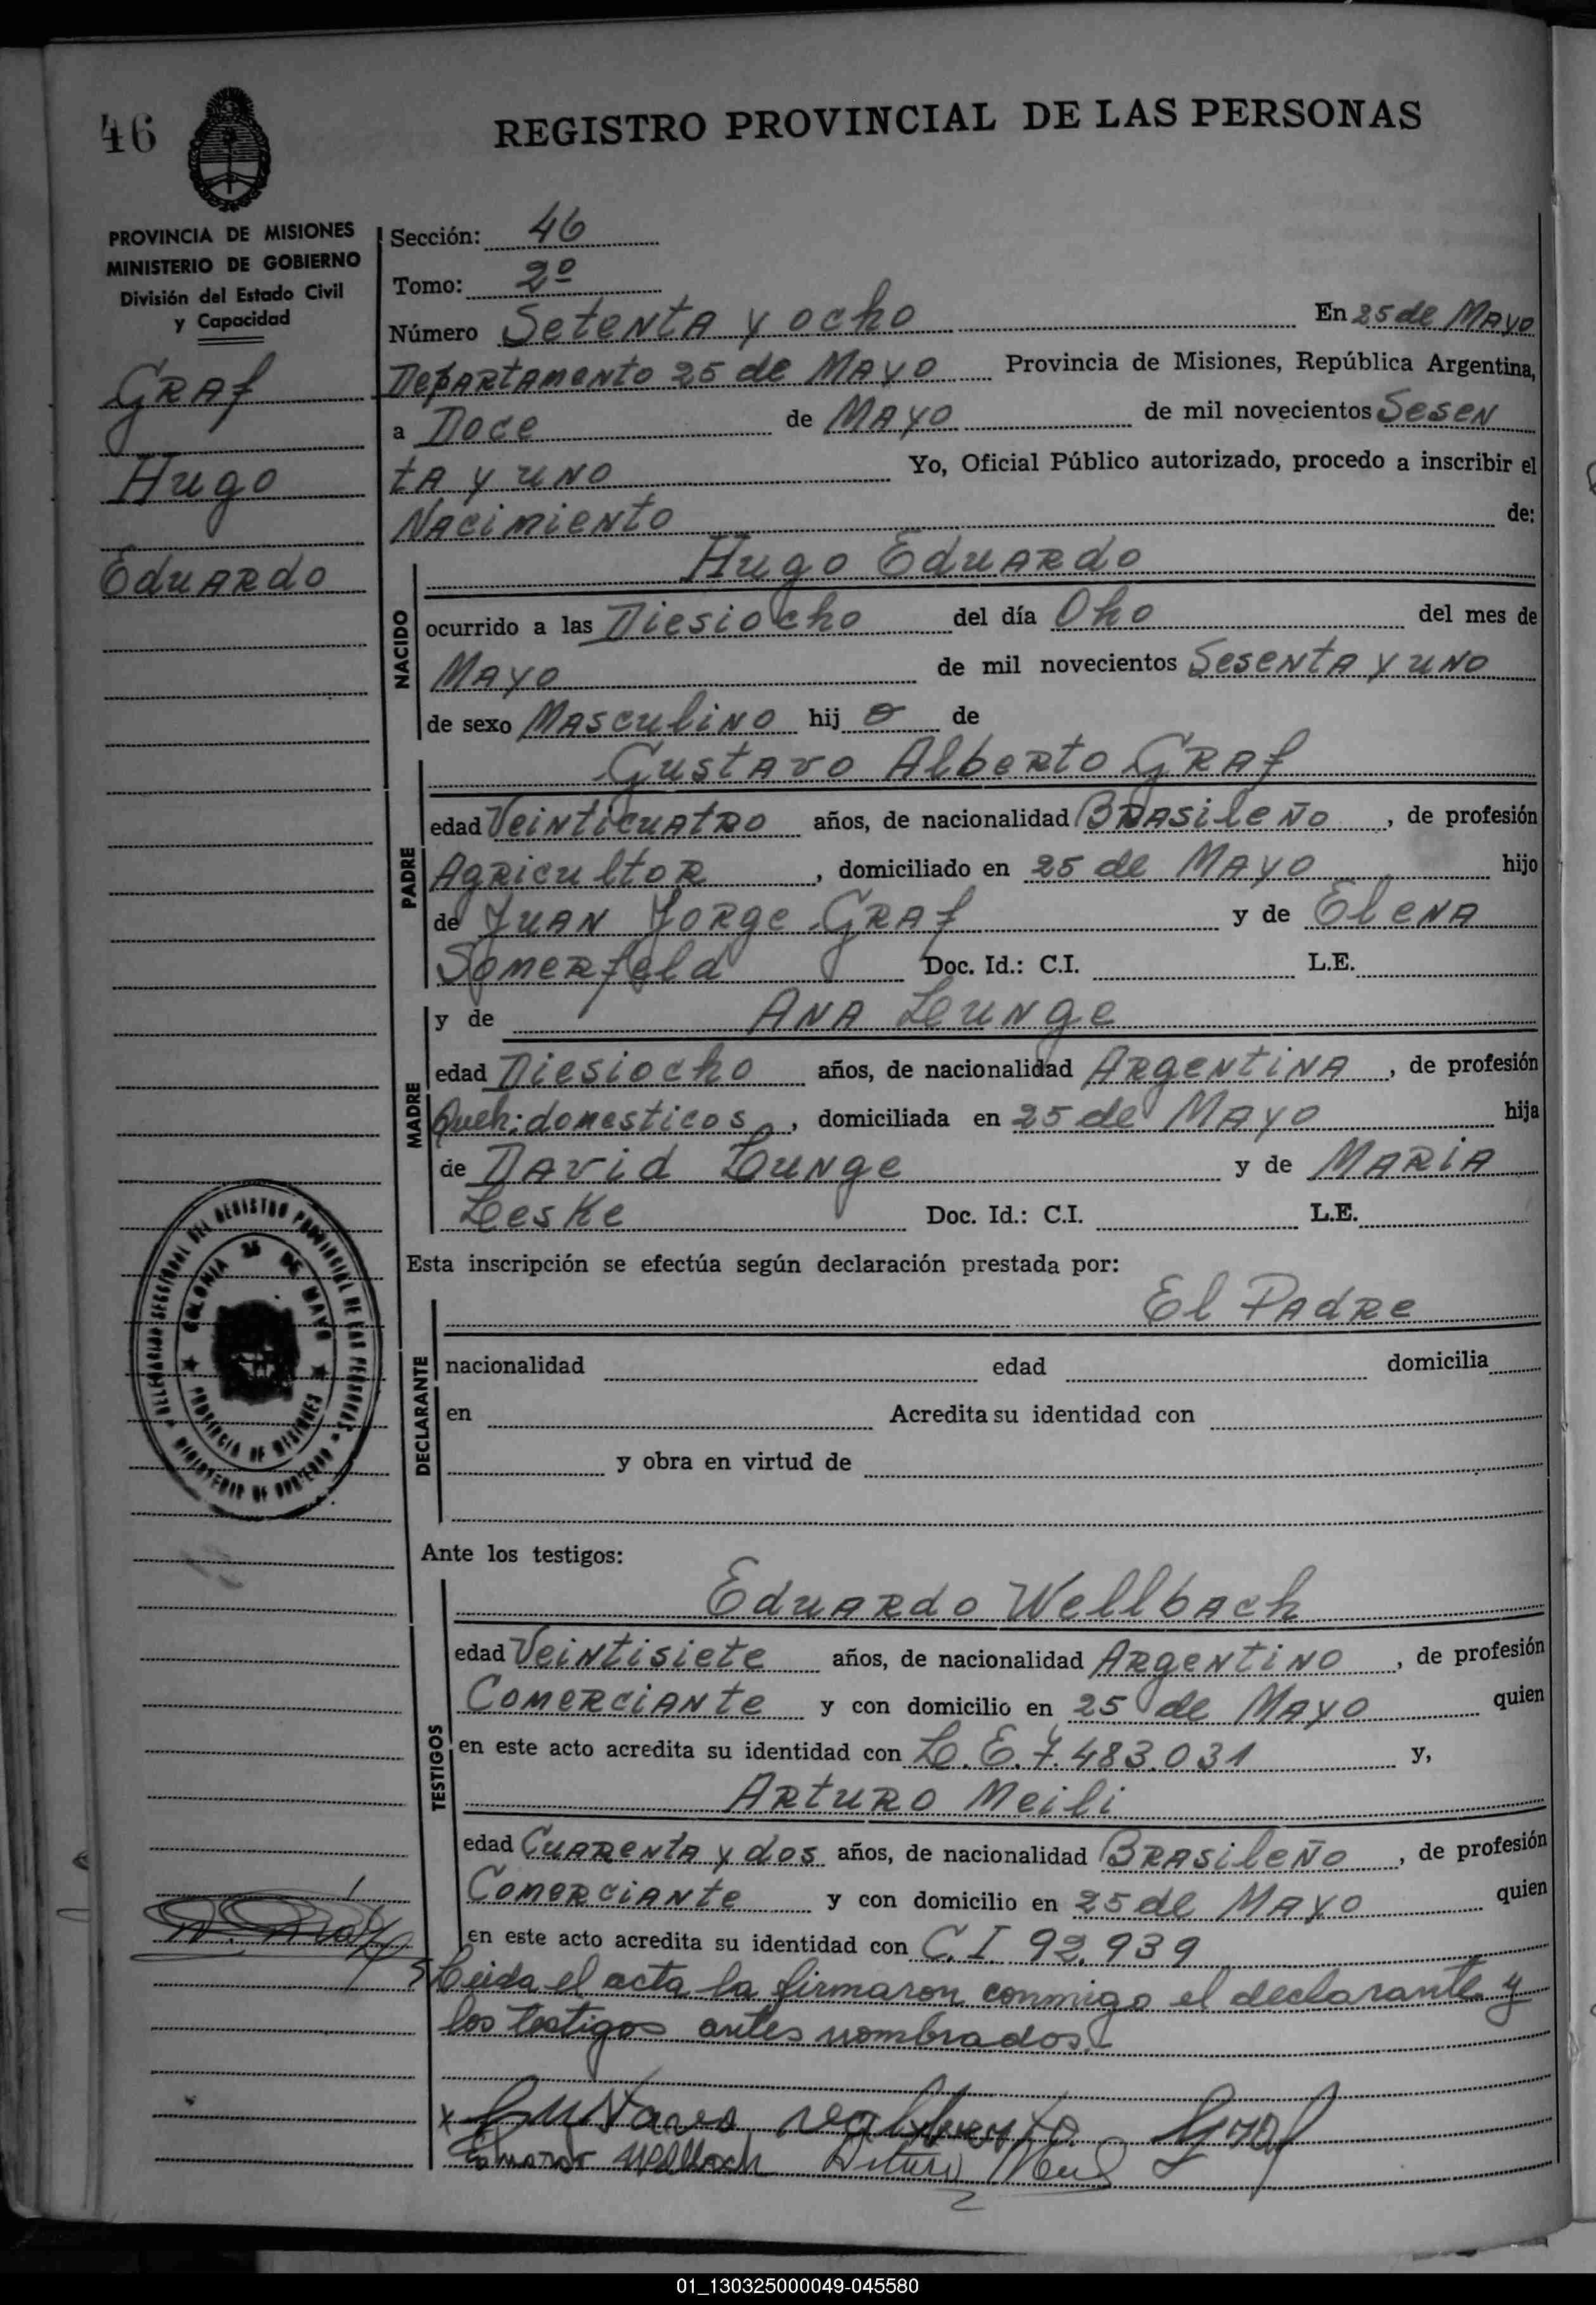 46
REGISTRO PROVINCIAL DE LAS PERSONAS
PROVINCIA DE MISIONES
MINISTERIO DE GOBIERNO
División del Estado Civil
y Capacidad
Graf
Hugo
Eduardo
Sección: 46
Tomo: 2º
Número Setenta y ocho En 25 de Mayo
Departamento 25 de Mayo Provincia de Misiones, República Argentina,
a Doce de Mayo de mil novecientos Sesen
ta y uno Yo, Oficial Público autorizado, procedo a inscribir el
Nacimiento de:
Hugo Eduardo
NACIDO
ocurrido a las Diesiocho del día Oho del mes de
Mayo de mil novecientos Sesenta y uno
de sexo Masculino hij o de
Gustavo Alberto Graf
PADRE
edad Veinticuatro años, de nacionalidad Brasileño, de profesión
Agricultor, domiciliado en 25 de Mayo hijo
de Juan Jorge Graf y de Elena
Somerfeld Doc. Id.: C.I. L.E.
y de Ana Leunge
MADRE
edad Diesiocho años, de nacionalidad Argentina, de profesión
Queh: domesticos, domiciliada en 25 de Mayo hija
de David Lunge y de Maria
Leske Doc. Id.: C.I. L.E.
Esta inscripción se efectúa según declaración prestada por:
El Padre
DECLARANTE
nacionalidad edad domicilia
en Acredita su identidad con
y obra en virtud de
DELEGACION SECCIONAL DEL REGISTRO PROVINCIAL DE LAS PERSONAS
COLONIA 25 DE MAYO
PROVINCIA DE MISIONES
MINISTERIO DE GOBIERNO
Ante los testigos:
Eduardo Wellbach
TESTIGOS
edad Veintisiete años, de nacionalidad Argentino, de profesión
Comerciante y con domicilio en 25 de Mayo quien
en este acto acredita su identidad con L.E. 7.483.031 y,
Arturo Meili
edad Cuarenta y dos años, de nacionalidad Brasileño, de profesión
Comerciante y con domicilio en 25 de Mayo quien
en este acto acredita su identidad con C.I. 92.939
Leida el acta la firmaron conmigo el declarante y
los testigos antes nombrados.
x Gustavo Graf
Arturo
01_130325000049-045580